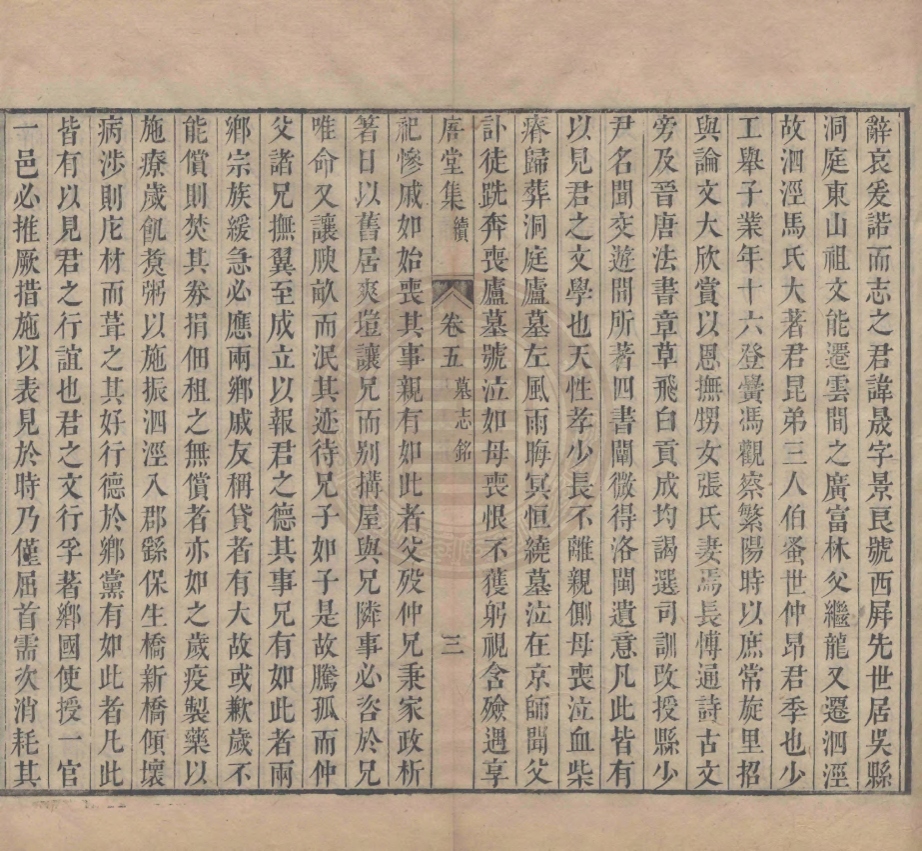 辭哀爰諾而志之君諱晟字景良號西屛先世居吳縣
洞庭東山祖文能遷雲間之廣富林父繼龍又遷泗涇
故泗涇馬氏大著君昆弟三人伯蚤世仲昂君季也少
工舉子業年十六登黌馮觀察繁陽時以庶常旋里招
與論文大欣賞以恩撫甥女張氏妻焉長博通詩古文
旁及晉唐法書章草飛白貢成均謁選司訓改授縣少
尹名聞交遊間所著四書闡微得洛閩遺意凡此皆有
以見君之文學也天性孝少長不離親側母喪泣血柴
瘠歸葬洞庭廬墓左風雨晦冥恒繞墓泣在京師聞父
訃徒跣奔喪廬墓號泣如母喪恨不獲躬視含殮遇享
唐堂集 續 卷五 墓志銘 三
祀慘戚如始喪其事親有如此者父歿仲兄秉家政析
箸日以舊居爽塏讓兄而别搆屋與兄隣事必咨於兄
唯命又讓腴畝而泯其迹待兄子如子是故騰孤而仲
父諸兄撫翼至成立以報君之德其事兄有如此者兩
鄉宗族緩急必應兩鄉戚友稱貸者有大故或歉歲不
能償則焚其券捐佃租之無償者亦如之歲疫製藥以
施療歲飢煑粥以施振泗涇入郡繇保生橋新橋傾壞
病涉則庀材而葺之其好行德於鄉黨有如此者凡此
皆有以見君之行誼也君之文行孚著鄉國使授一官
一邑必推厥措施以表見於時乃僅屈首需次消耗其